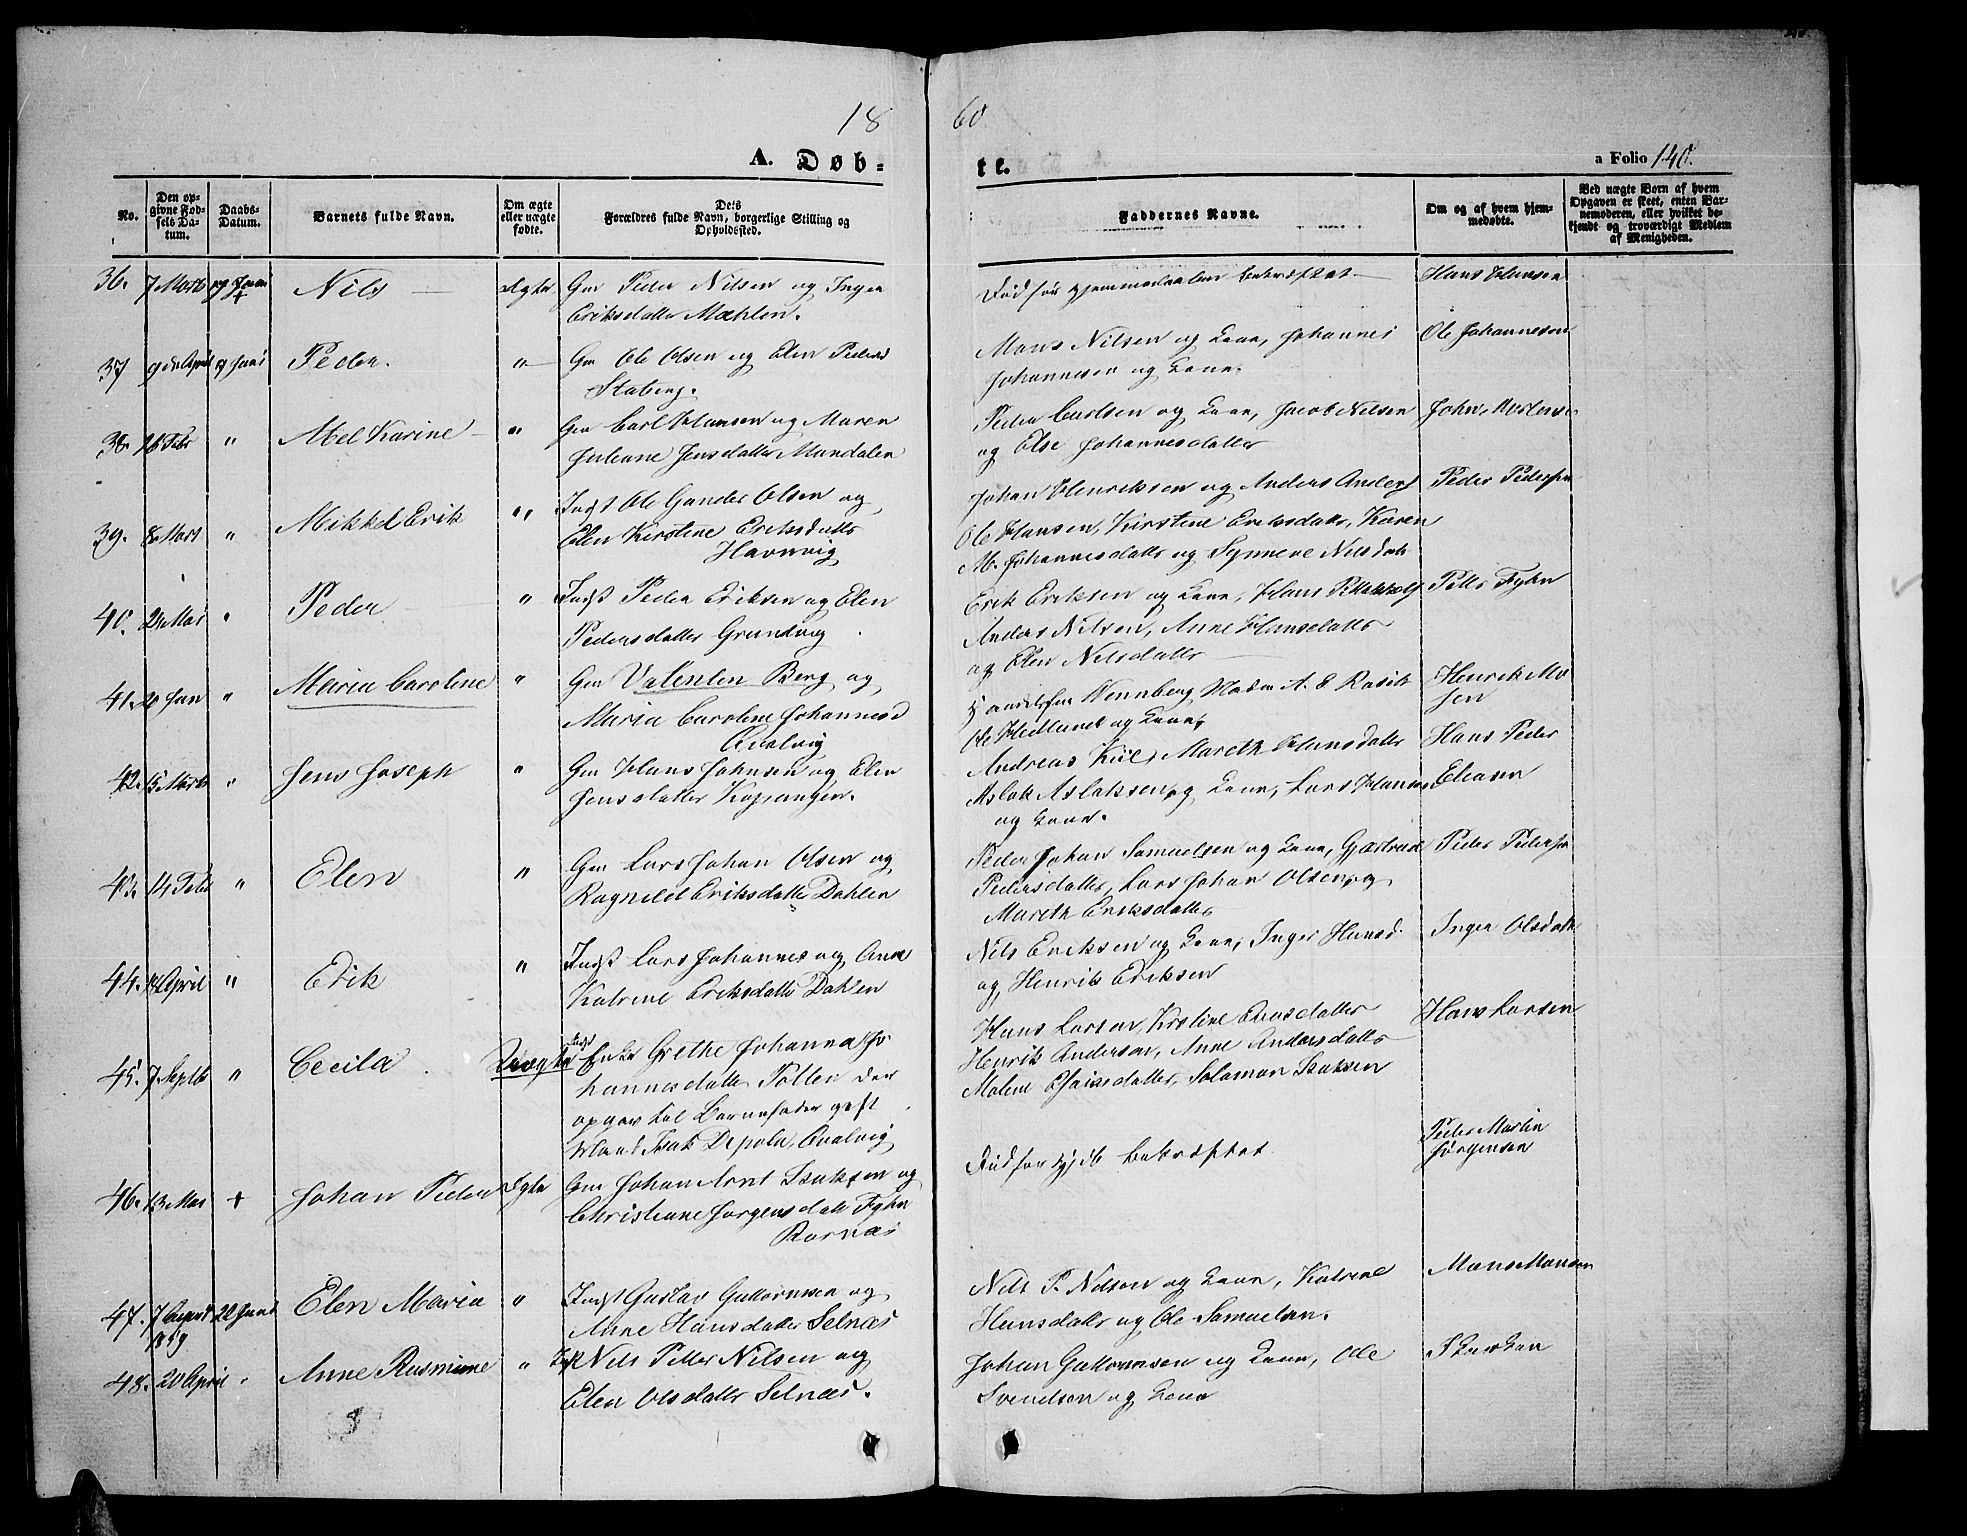 18 60
A. Døb- te.
a Folio 140.
No.
Den op-
givne Fød-
sels Da-
tum.
Daabs-
Datum.
Barnets fulde Navn.
Om ægte
eller uægte
fødte.
Dets
Forældres fulde Navn, borgerlige Stilling og
Opholdssted.
Faddernes Navne.
Om og af hvem hjem-
medøbte.
Ved uægte Børn af hvem
Opgaven er skeet, enten Bar-
nemoderen, eller hvilket be-
kjendt og troværdigt Medlem
af Menigheden.
36. 7 Marts Nils Ægte Gm Peder Nilsen og Inger
Eriksdatter Mæhlen.
bekræftet Hans Hansen
37 Peder. " Gm Ole Olsen og Elen Pedersd
Staberg.
Mons Nilsen og Kone, Johannes
Johannesen og Kone.
Ole Johannesen
38. 16 Febr " Abel Karine " Gm Carl Hansen og Maren
Juliane Jensdatter Mandalen
Peder Carlsen og Kone, Jacob Nilsen
og Else Johannesdatter
39. 8 Mart " Mikkel Erik " Indst Ole Gunder Olsen og
Elen Kirstine Eriksdatter
Havnvig
Johan Henriksen og Anders Anders
Ole Hansen, Kirstine Eriksdatter, Karen
M. Johannesdatter og Synneve Nilsdatt
Peder Pedersen
40. Mai " Peder " Indst Peder Eriksen og Elen
Pedersdatter Grundvig
Erik Eriksen og Kone, Hans
Anders Nilsen, Anne Hansdatter
og Elen Nilsdatter
Petter Fyhn
41. 20 Jan " Maria Caroline " Gm Valentin Berg og
Maria Caroline Johannesd
Qvalvig
Wennberg, Madm A. E.
Ole Hedlund og Kone,
Henrik Mo
sen
42. 15 Marts " Jens Joseph " Gm Hans Johnsen og Elen
Jensdatter Kopangen.
Andreas Kiil, Mareth Hansdatter
Aslak Aslaksen og Kone, Lars Hansen
og Kone.
Hans Peder
Eliasen
43. 14 Febr " Elen " Gm Lars Johan Olsen og
Ragnild Eriksdatter Dahlen
Peder Johan Samuelsen og Kone, Gjertrud
Pedersdatter, Lars Johan Olsen og
Mareth Eriksdatter
Peder Pedersen
44. April " Erik " Indst Lars Johannes og Ane
Katrine Eriksdatter Dahlen
Nils Eriksen og Kone, Inger Hansd.
og Henrik Eriksen
Inger Olsdatter
45. 7 Septb " Cecilia. Uægte Indst
Enke Grethe Johanna Jo-
hannesdatter Pollen der
opgav til Barnefader gift
Mand Isak Qvalvig
Hans Larsen, Kirstine datter
Henrik Andersen, Anne Andersdatter
Malene Esaiasdatter, Salamon Isaksen
Hans Larsen
46. 13 Mai + Johan Peder Ægte Gm Johan Arnt Isaksen og
Christiane Jørgensdatt Fyhn
Rornæs
bekræftet.
Peder Martin
Jørgensen
47. 7 August
1859
20 Juni Elen Maria " Indst Gustav Guttormsen og
Anne Hansdatter Selnæs
Nils P. Nilsen og Kone, Katrine
Hansdatter og Ole Samuelsen.
Mons Monsen
48. 20 April " Anne Rasmine " Indst Nils Petter Nilsen og
Elen Olsdatter Selnæs.
Johan Guttormsen og Kone, Ole
Svendsen og Kone